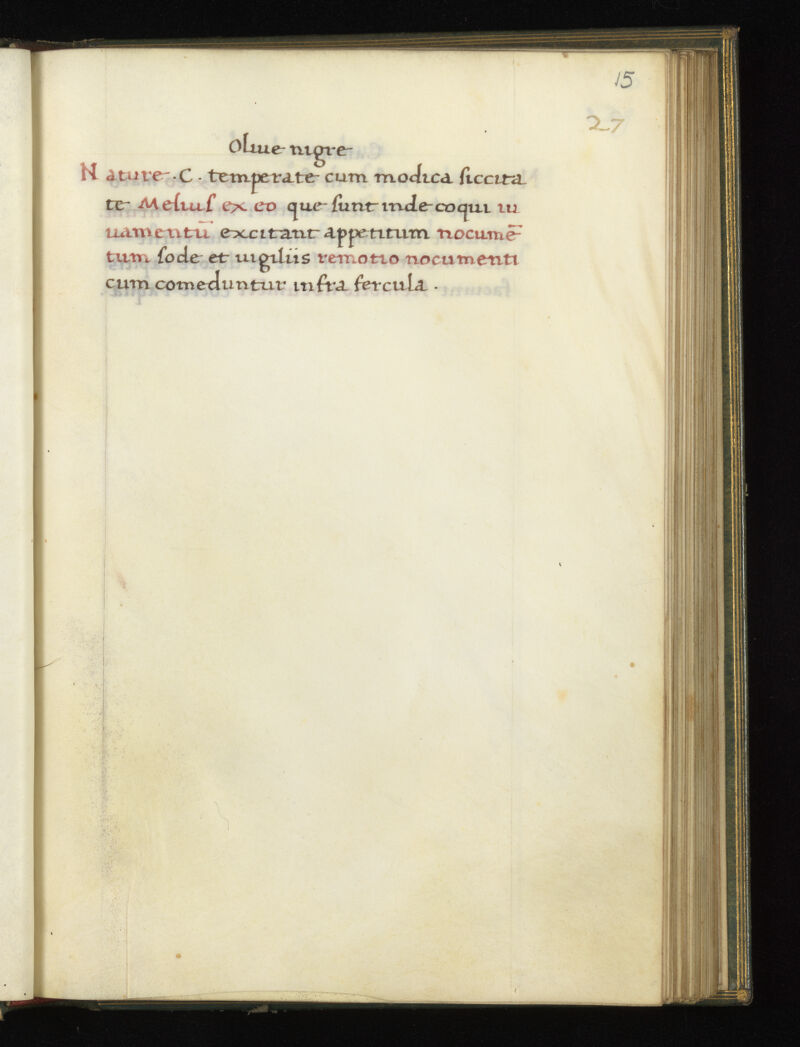 15
27
Oliue nigre
Nature ·C· temperate cum modica siccita
te Melius ex eo que sunt inde coqui iu
uamentū excitant appetitum nocumē
tum sode et uigiliis remotio nocumenti
cum comeduntur infra fercula ·